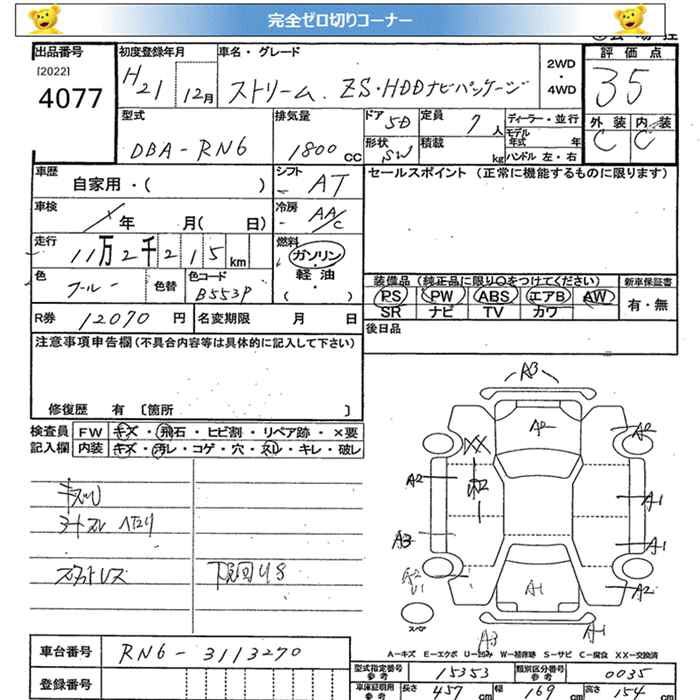 完全ゼロ切りコーナー
出品番号 初度登録年月 車名・グレード 評価点
[2022] 2WD
4077 H21 12月 ストリーム. ZS・HDDナビパッケージ ・ 35
4WD
型式 排気量 ドア 5D 定員 7人 ディーラー・並行 外装 内装
モデル年式 年
DBA-RN6 1800cc 形状 SW 積載 kg ハンドル 左・右 C C
車歴 シフト セールスポイント (正常に機能するものに限ります)
自家用・( ) AT
車検 年 月( 日) 冷房 AA/C
走行 11万2千215km 燃料
ガソリン・
色 色替 色コード 軽油・
B553P ( )
装備品 (純正品に限り○をつけてください) 新車保証書
PS PW ABS エアB AW 有・無
SR ナビ TV カワ
R券 12070円 名変期限 月 日 後日品
注意事項申告欄 (不具合内容等は具体的に記入して下さい)
修復歴 有 〔箇所 〕
検査員 FW キズ・飛石・ヒビ割・リペア跡・×要
記入欄 内装 キズ・汚レ・コゲ・穴・スレ・キレ・破レ
A3
A2 A2
XX
A2 A2 A1
A3 A1
A2
U1 A1 A2
スペア A3 A1
A-キズ E-エクボ U-凹み W-補修跡 S-サビ C-腐食 XX-交換済
車台番号 RN6-3113270
登録番号
型式指定番号 参考 15353 類別区分番号 参考 0035
車庫証明用 参考 長さ 457cm 幅 169cm 高さ 154cm